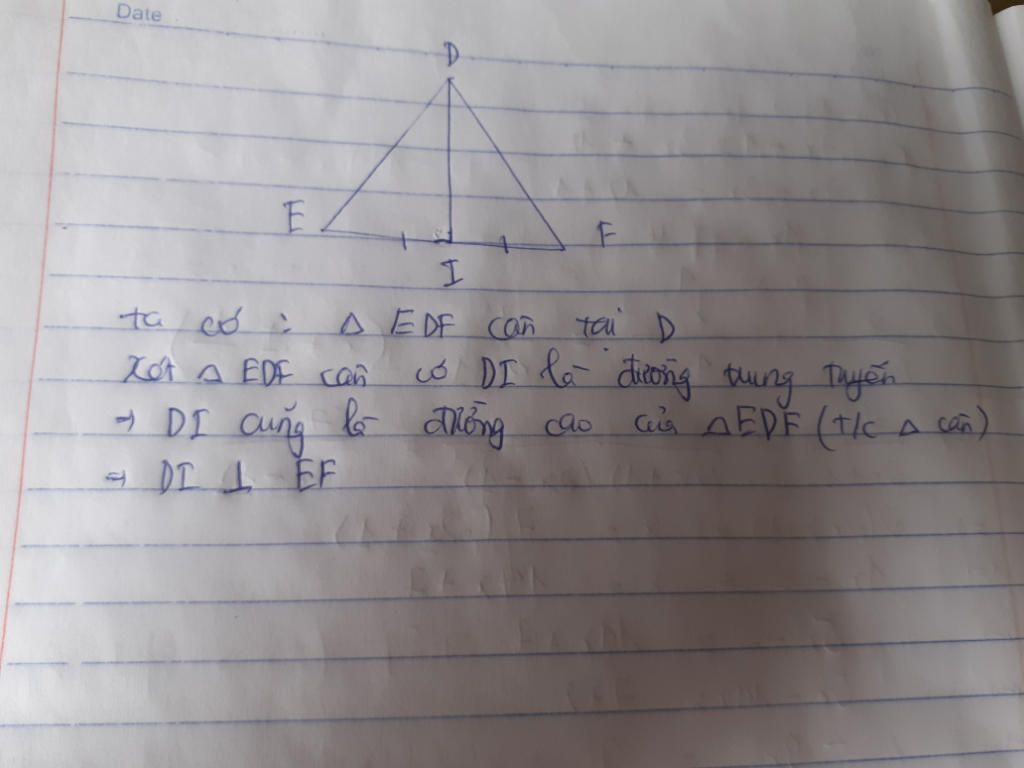 Date
D
E
F
I
ta có : Δ EDF cân tại D
Xét Δ EDF cân có DI là đường trung tuyến
⇒ DI cũng là đường cao của Δ EDF (t/c Δ cân)
⇒ DI ⊥ EF